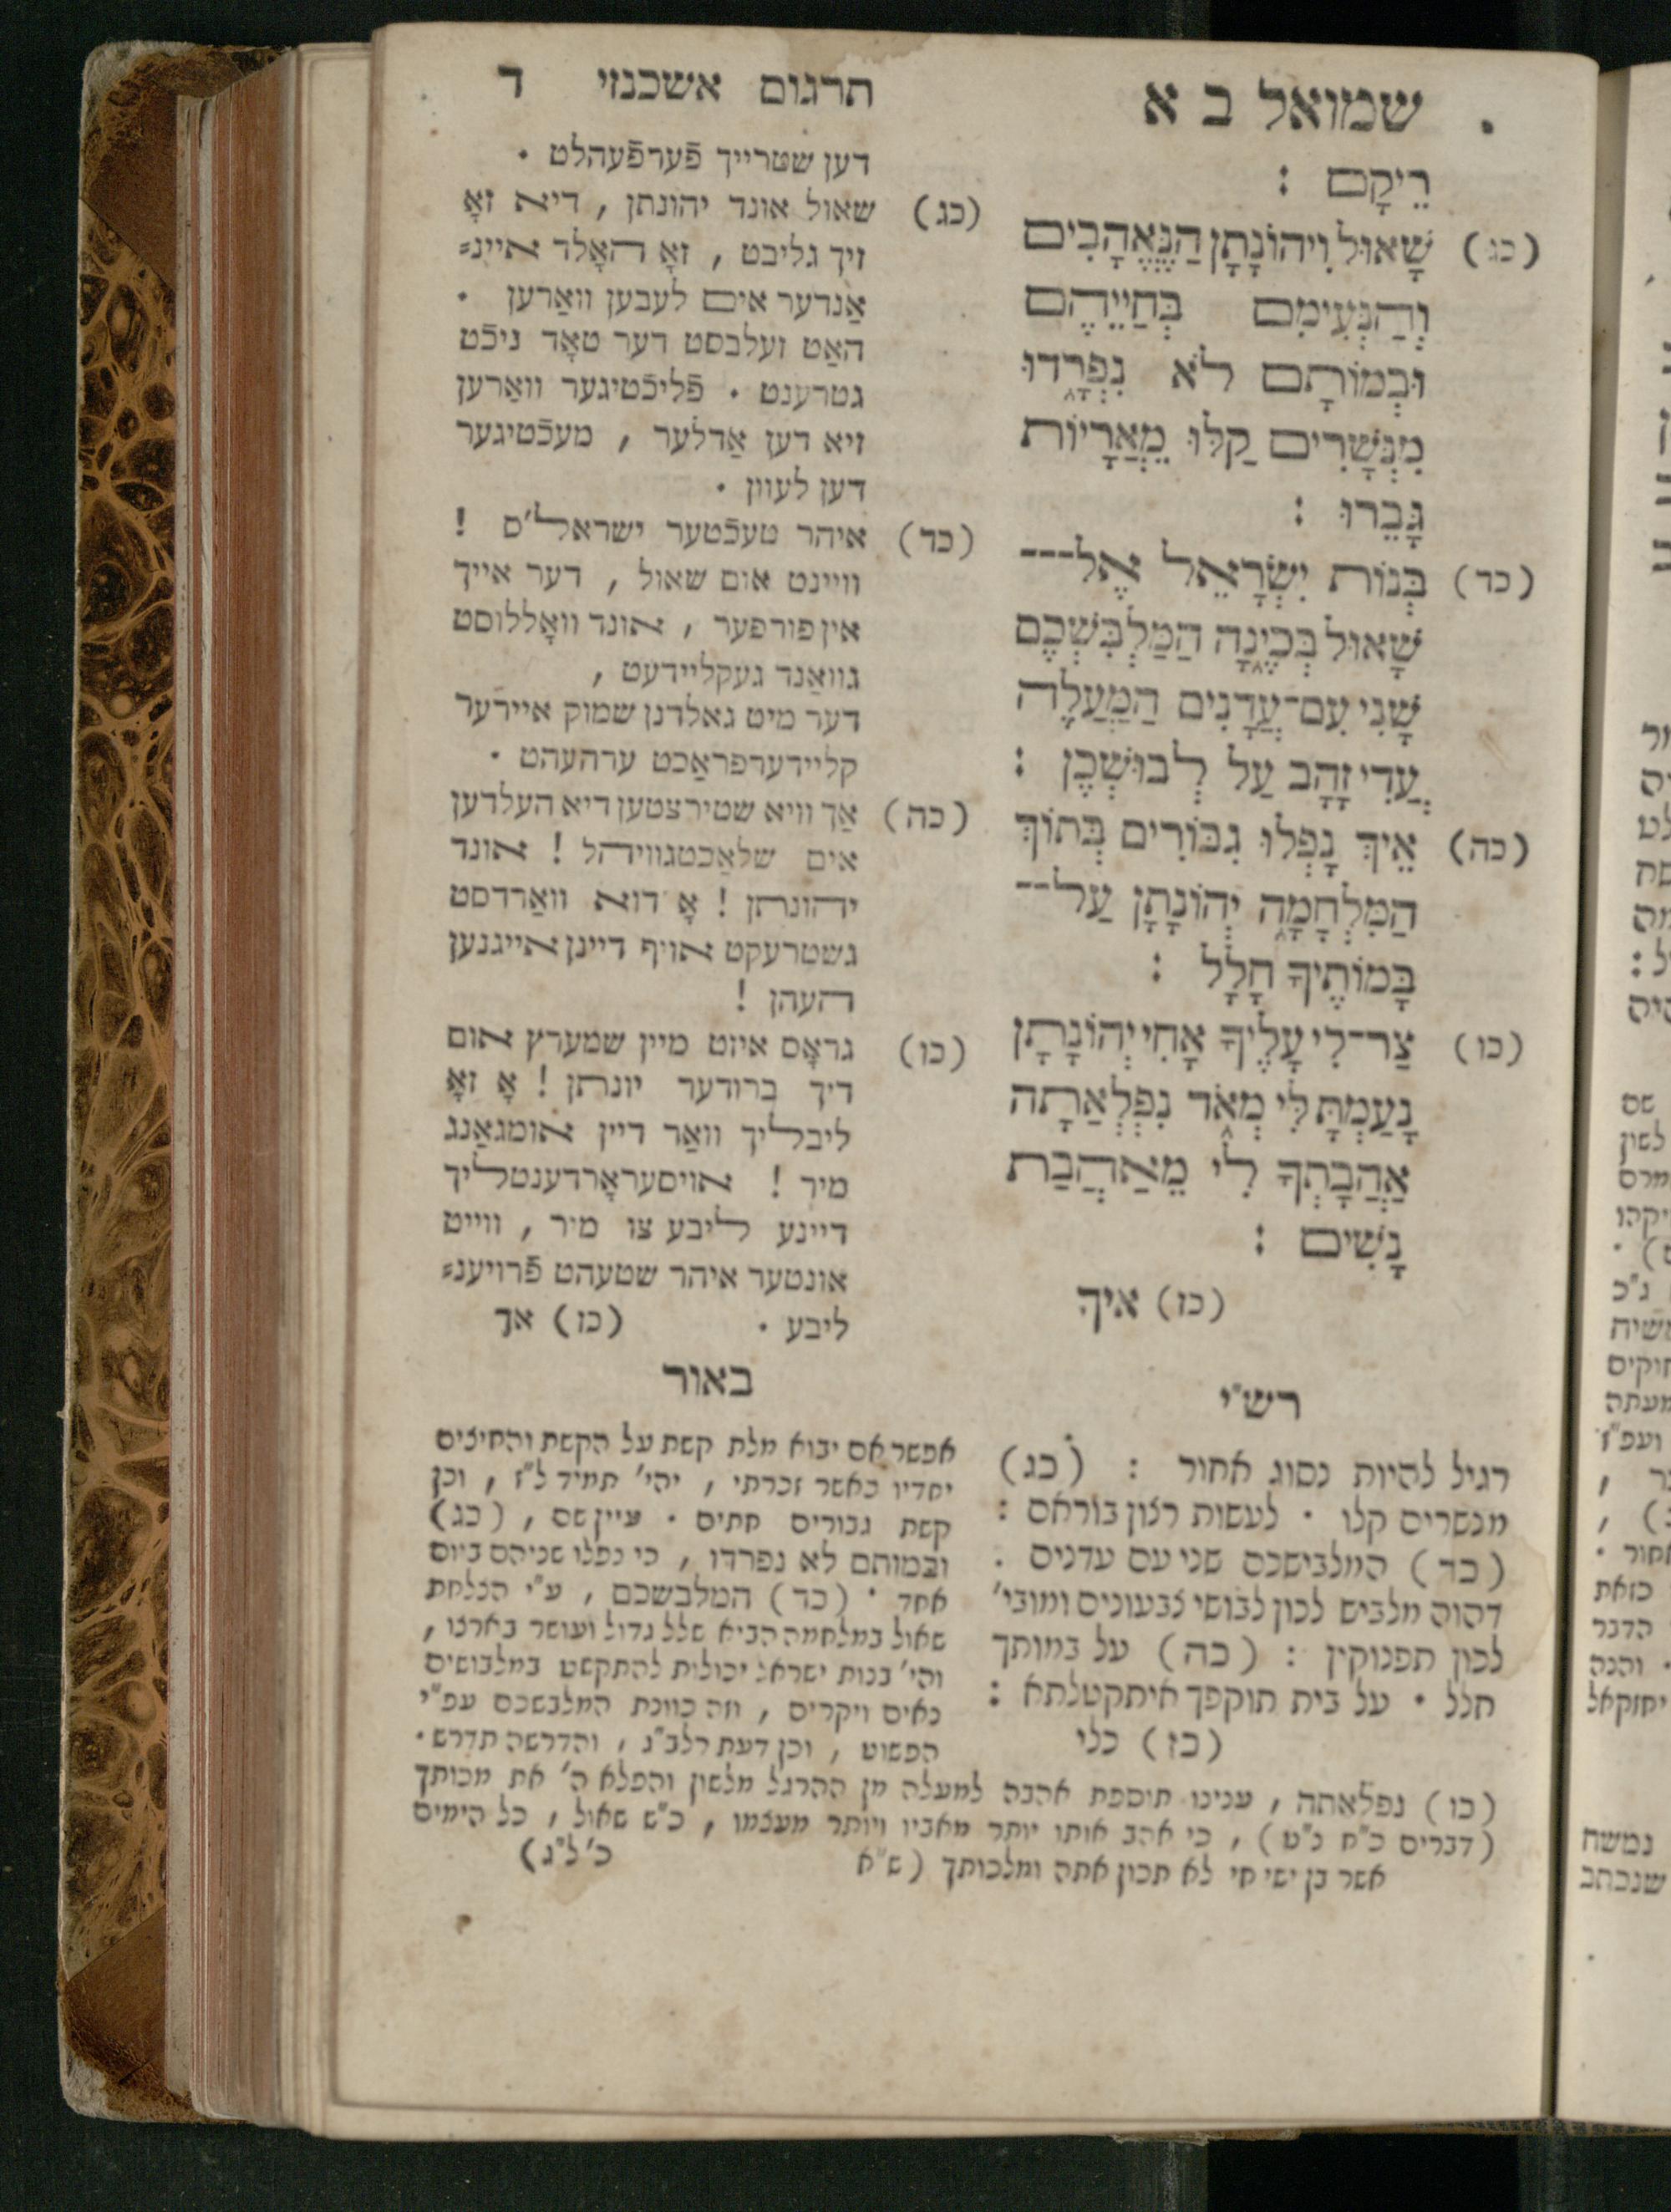 שמואל ב א
רֵיקָם :
(כג) שָׁאוּל וִיהוֹנָתָן הַנֶּאֱהָבִים
וְהַנְּעִימִם בְּחַיֵּיהֶם
וּבְמוֹתָם לֹא נִפְרָדוּ
מִנְּשָׁרִים קַלּוּ מֵאֲרָיוֹת
גָּבֵרוּ :
(כד) בְּנוֹת יִשְׂרָאֵל אֶל־
שָׁאוּל בְּכֶינָה הַמַּלְבִּשְׁכֶם
שָׁנִי עִם־עֲדָנִים הַמַּעֲלֶה
עֲדִי זָהָב עַל לְבוּשְׁכֶן :
(כה) אֵיךְ נָפְלוּ גִבּוֹרִים בְּתוֹךְ
הַמִּלְחָמָה יְהוֹנָתָן עַל־
בָּמוֹתֶיךָ חָלָל :
(כו) צַר־לִי עָלֶיךָ אָחִי יְהוֹנָתָן
נָעַמְתָּ לִּי מְאֹד נִפְלְאַתָה
אַהֲבָתְךָ לִי מֵאַהֲבַת
נָשִׁים :
(כז) איך
תרגום אשכנזי ד
דען שטרייך פֿערפֿעהלט .
(כג) שאול אונד יהונתן , דיא זאָ
זיך גליבט , זאָ האָלד איינ=
אַנדער אים לעבען וואַרען .
האַט זעלבסט דער טאָד ניכֿט
גטרענט . פֿליכֿטיגער וואַרען
זיא דען אַדלער , מעכֿטיגער
דען לעוון .
(כד) איהר טעכֿטער ישראל'ס !
וויינט אום שאול , דער אייך
אין פורפער , אונד וואָללוסט
גוואַנד געקליידעט ,
דער מיט גאלדנן שמוק איירער
קליידערפראַכט ערהעהט .
(כה) אַך וויא שטירצטען דיא העלדען
אים שלאַכטגוויהל ! אונד
יהונתן ! אָ דוא וואַרדסט
גשטרעקט אויף דיינן אייגנען
העהן !
(כו) גראָס איזט מיין שמערץ אום
דיך ברודער יונתן ! אָ זאָ
ליבליך וואַר דיין אומגאַנג
מיר ! אויסעראָרדענטליך
דיינע ליבע צו מיר , ווייט
אונטער איהר שטעהט פֿרויענ=
ליבע . (כז) אך
רש"י
רגיל להיות נסוג אחור : (כג)
מנשרים קלו . לעשות רצון בוראם :
(כד) המלבישכם שני עם עדנים .
דהוה מלביש לכון לבושי צבעונים ומובי'
לכון תפנוקין : (כה) על במותך
חלל . על בית תוקפך איתקטלתא :
(כז) כלי
באור
אפשר אם יבוא מלת קשת על הקשת והחיצים
יחדיו כאשר זכרתי , יהי' תמיד ל"ז , וכן
קשת גבורים חתים . עיין שם , (כג)
ובמותם לא נפרדו , כי נפלו שניהם ביום
אחד . (כד) המלבשכם , ע"י הצלחת
שאול במלחמה הביא שלל גדול ועושר בארצו ,
והי' בנות ישראל יכולות להתקשט במלבושים
נאים ויקרים , וזה כוונת המלבשכם עפ"י
הפשוט , וכן דעת רלב"ג , והדרשה תדרש .
(כו) נפלאתה , ענינו תוספת אהבה למעלה מן ההרגל מלשון והפלא ה' את מכותך
(דברים כ"ח נ"ט) , כי אהב אותו יותר מאביו ויותר מעצמו , כ"ש שאול , כל הימים
אשר בן ישי חי לא תכון אתה ומלכותך (ש"א כ' ל"ג)